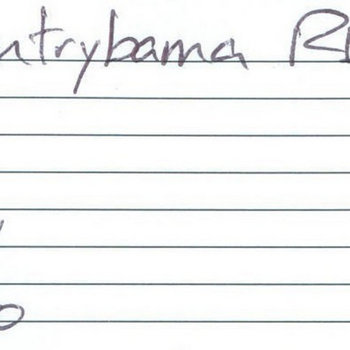 ntrybama R